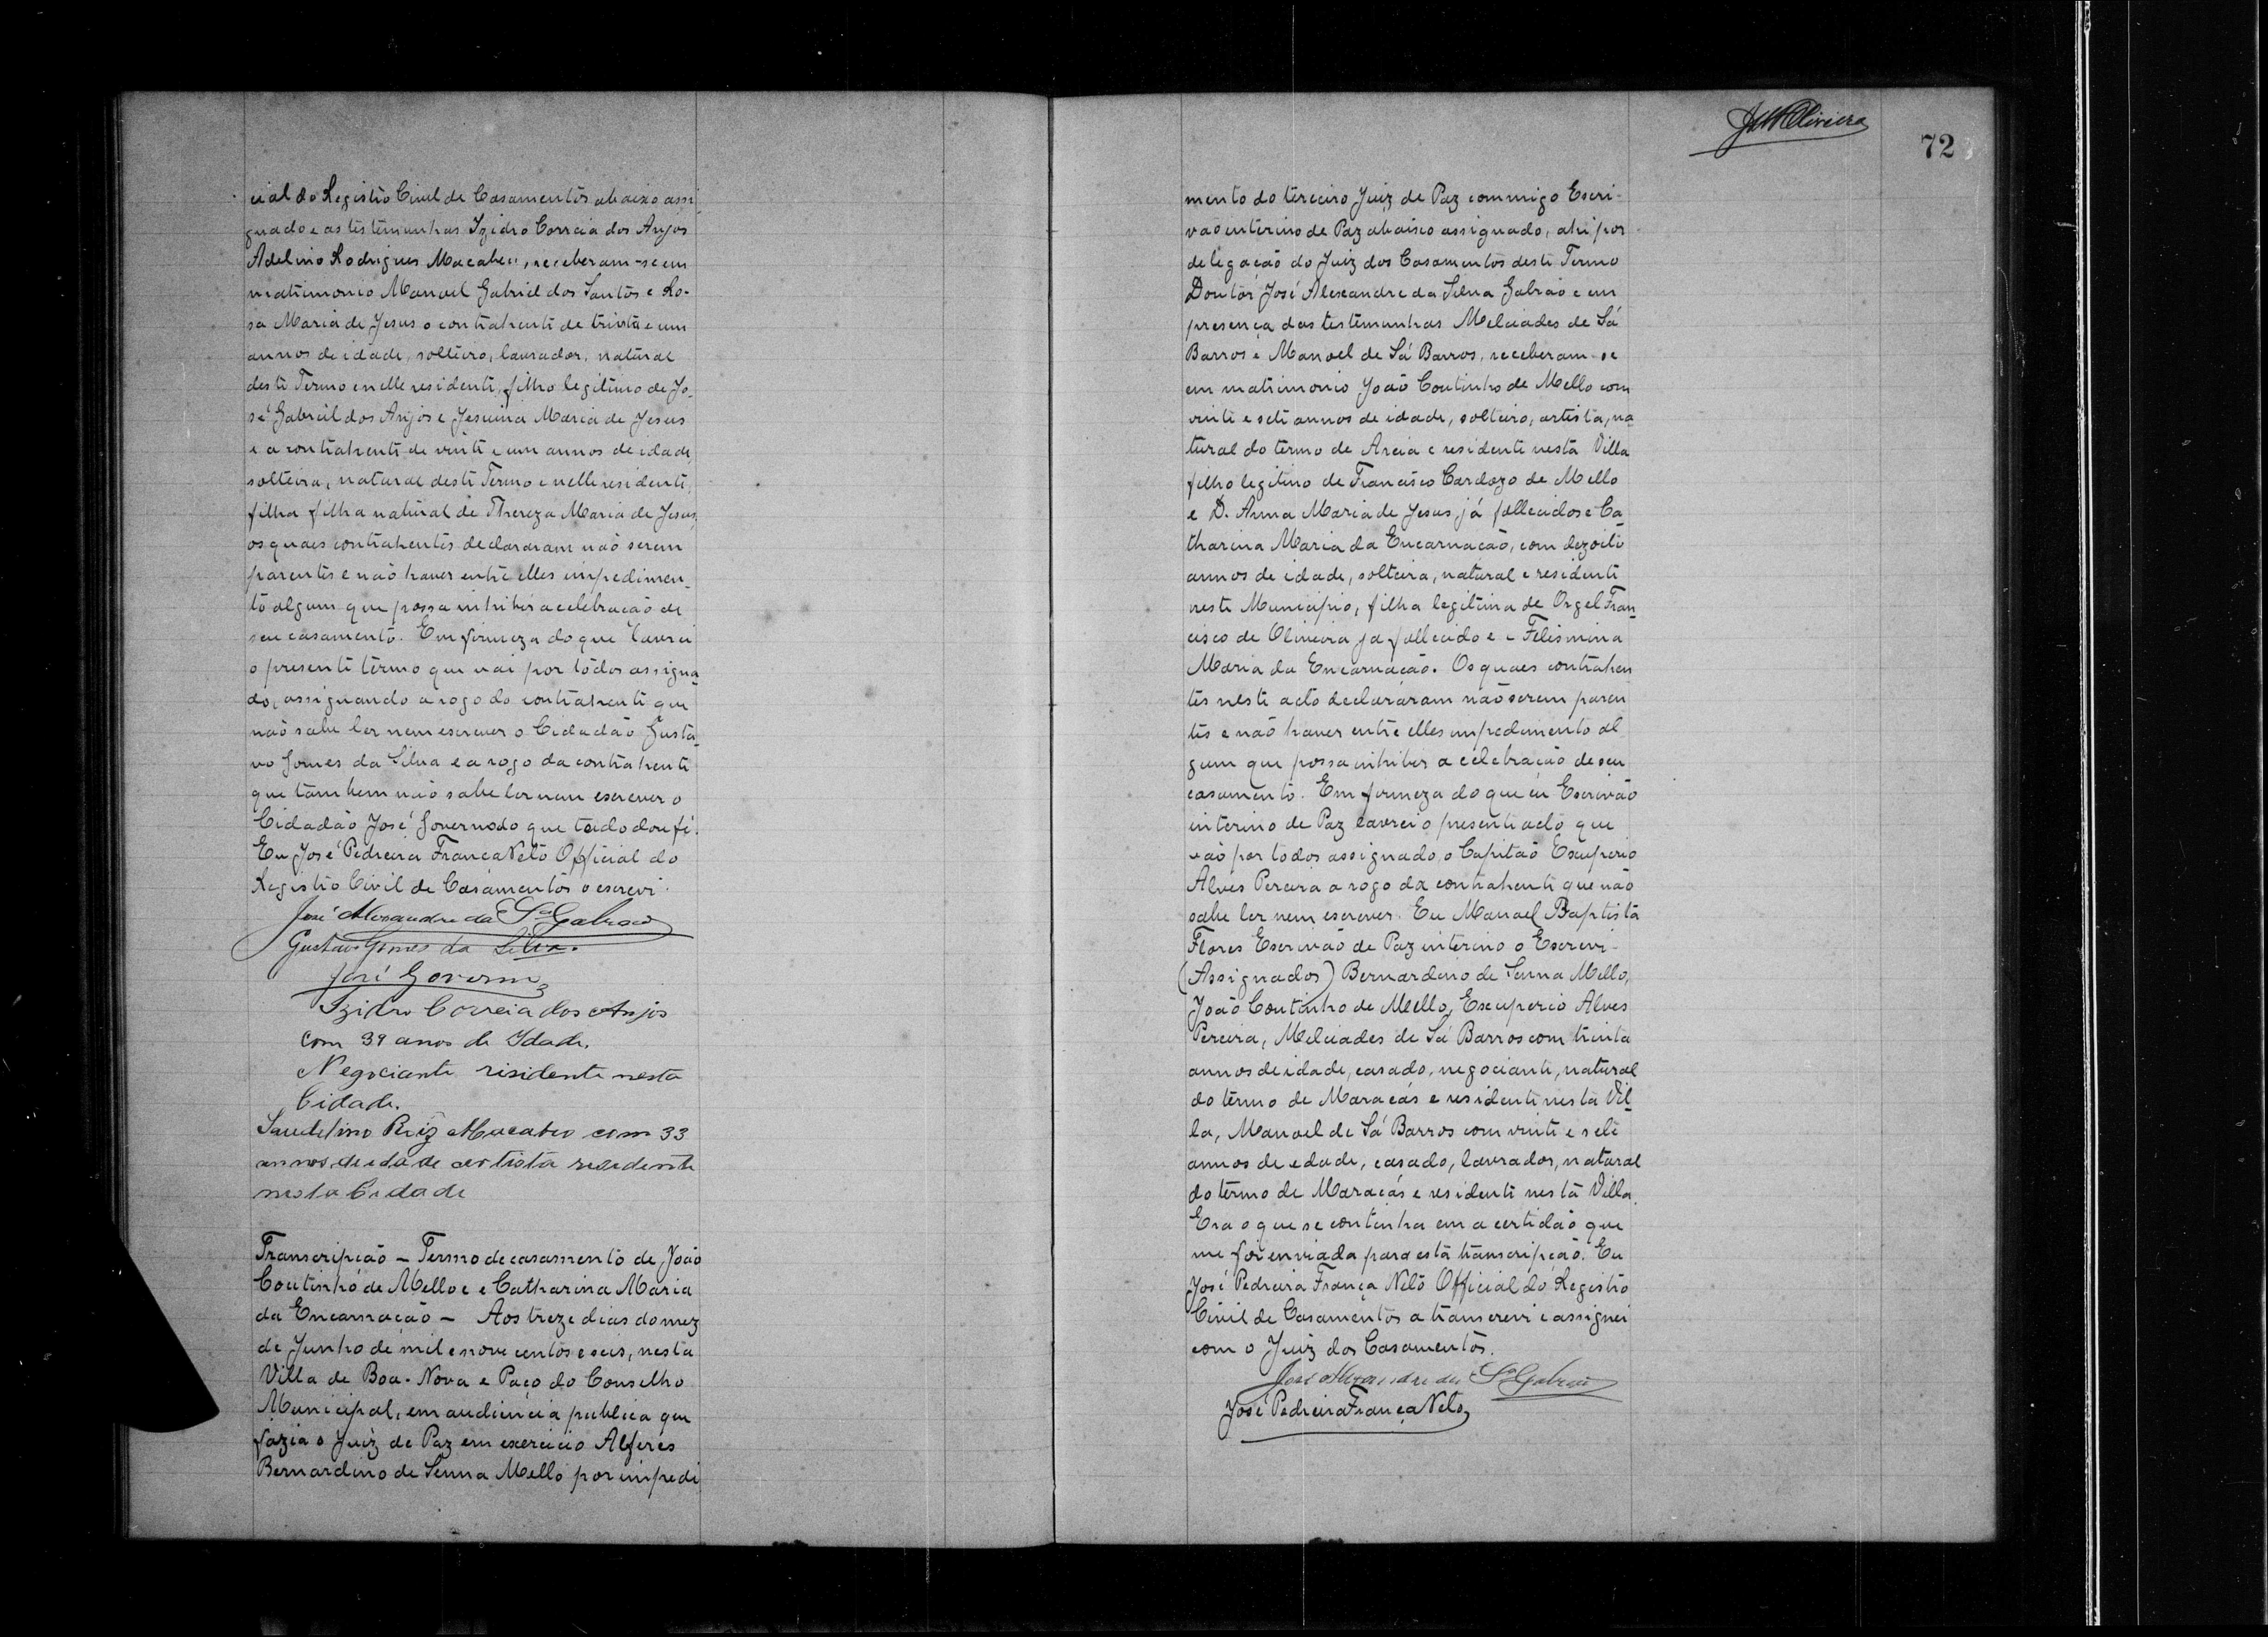 cial do Registro Civil de Casamentos abaixo assi-
gnado e as testemunhas Izidro Correia dos Anjos
Adelino Rodrigues Macabeu, receberam-se em
matrimonio Manoel Gabriel dos Santos e Ro-
sa Maria de Jesus o contrahente de trinta e um
annos de idade, solteiro, lavrador, natural
deste Termo e nelle residente, filho legitimo de Jo-
sé Gabriel dos Anjos e Jesuina Maria de Jesus
e a contrahente de vinte e um annos de idade,
solteira, natural deste Termo e nelle residente,
filha filha natural de Thereza Maria de Jesus,
os quaes contrahentes declararam não serem
parentes e não haver entre elles impedimen-
to algum que possa inhibir a celebração de
seu casamento. Em firmeza do que lavrei
o presente termo que vai por todos assigna-
do, assignando a rogo do contrahente que
não sabe ler nem escrever o Cidadão Gusta-
vo Gomes da Silva e a rogo da contrahente
que tambem não sabe ler nem escrever o
Cidadão José Governo do que tudo dou fé.
Eu José Pedreira França Neto Official do
Registro Civil de Casamentos o escrevi.
José Alexandre da Sa Galrão
Gustavo Gomes da Silva.
José Governo
Izidro Correia dos Anjos
com 39 anos de Idade,
Negociante risidente nesta
Cidade.
Macabeo com 33
annos de idade artista residente
nesta Cidade
Transcripção - Termo de casamento de João
Coutinho de Mello e e Catharina Maria
da Encarnação - Aos treze dias do mez
de Junho de mil e nove centos e seis, nesta
Villa de Boa-Nova e Paço do Conselho
Municipal, em audiencia publica que
fazia o Juiz de Paz em exercicio Alferes
Bernardino de Senna Mello por impedi
72
mento do terceiro Juiz de Paz commigo Escri-
vão interino de Paz abaixo assignado, ahi por
delegação do Juiz dos Casamentos deste Termo
Doutor José Alexandre da Silva Galrão e em
presença das testemunhas Melciades de Sá
Barros e Manoel de Sá Barros, receberam-se
em matrimonio João Coutinho de Mello com
vinte e sete annos de idade, solteiro, artista, na-
tural do termo de Areia e residente nesta Villa
filho legitimo de Francisco Cardozo de Mello
e D. Anna Maria de Jesus, já fallecidos e Ca-
tharina Maria da Encarnação, com dezoito
annos de idade, solteira, natural e residente
neste Municipio, filha legitima de Orgel Fran-
cisco de Oliveira ja fallecido e e Felismina
Maria da Encarnação. Os quaes contrahen
tes neste acto declararam não serem paren
tes e não haver entre elles impedimento al
gum que possa inhibir a celebração de seu
casamento. Em firmeza do que eu Escrivão
interino de Paz lavrei o presente acto que
vão por todos assignado, o Capitão Exuperio
Alves Pereira a rogo da contrahente que não
sabe ler nem escrever. Eu Manoel Baptista
Flores Escrivão de Paz interino o Escrevi-
(Assignados) Bernardino de Senna Mello,
João Coutinho de Mello, Exuperio Alves
Pereira, Melciades de Sá Barros com trinta
annos de idade, casado, negociante, natural
do termo de Maracás e residente nesta Vil-
la, Manoel de Sá Barros com vinte e sete
annos de edade, casado, lavrador, natural
do termo de Maracás e residente nesta Villa.
Era o que se continha em a certidão que
me foi enviada para esta transcripção. Eu
José Pedreira França Neto Official do Registro
Civil de Casamentos a transcrevi e assignei
com o Juiz dos Casamentos.
José Alexandre da Sa Galrão
José Pedreira França Neto